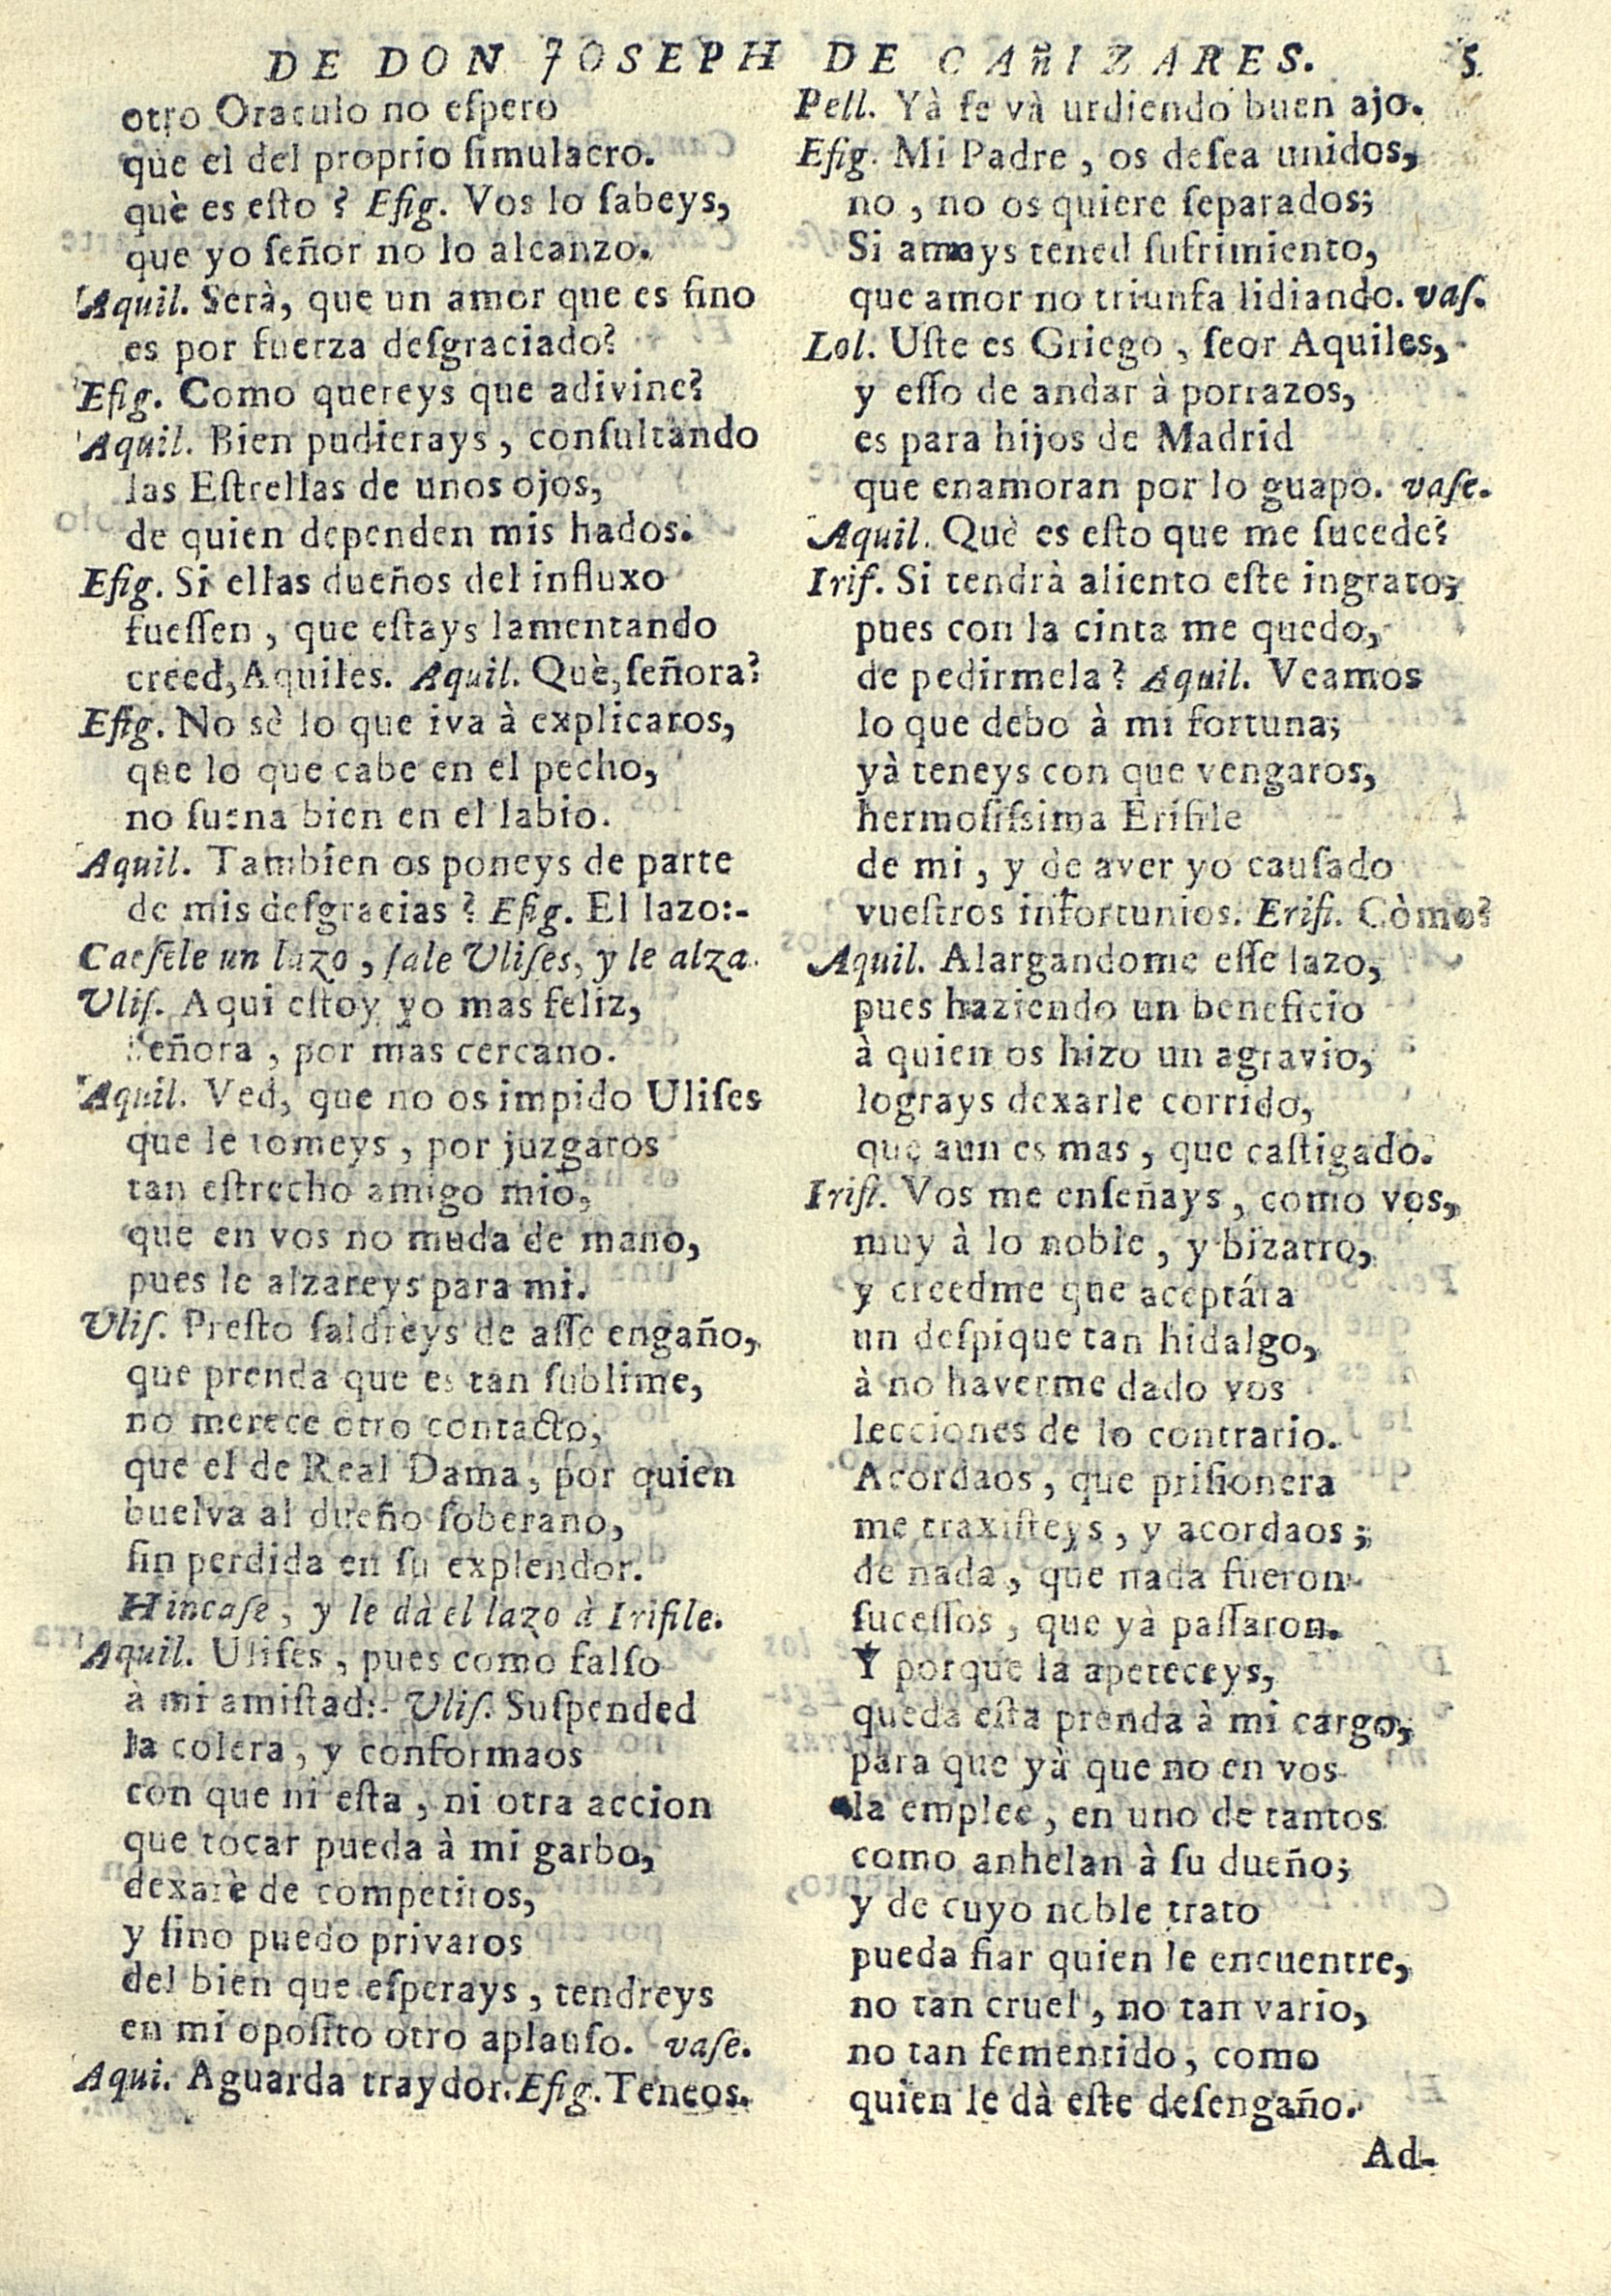 DE DON JOSEPH DE CAñIZARES. 5
otro Oraculo no eſpero
que el del proprio ſimulacro.
què es eſto? Efig. Vos lo ſabeys,
que yo ſeñor no lo alcanzo.
Aquil. Serà, que un amor que es fino
es por fuerza deſgraciado?
Efig. Como quereys que adivine?
Aquil. Bien pudierays, conſultando
las Eſtrellas de unos ojos,
de quien dependen mis hados.
Efig. Si ellas dueños del influxo
fueſſen, que eſtays lamentando
creed, Aquiles. Aquil. Què, ſeñora?
Efig. No sè lo que iva à explicaros,
que lo que cabe en el pecho,
no ſuena bien en el labio.
Aquil. Tambien os poneys de parte
de mis deſgracias? Efig. El lazo:-
Caeſele un lazo, ſale Uliſes, y le alza.
Uliſ. Aqui eſtoy yo mas feliz,
ſeñora, por mas cercano.
Aquil. Ved, que no os impido Uliſes
que le tomeys, por juzgaros
tan eſtrecho amigo mio,
que en vos no muda de mano,
pues le alzareys para mi.
Uliſ. Preſto ſaldrèys de aſſe engaño,
que prenda que es tan ſublime,
no merece otro contacto,
que el de Real Dama, por quien
buelva al dueño ſoberano,
ſin perdida en ſu explendor.
Hincaſe, y le dà el lazo à Irifile.
Aquil. Uliſes, pues como falſo
à mi amiſtad:- Uliſ. Suſpended
la colera, y conformaos
con que ni eſta, ni otra accion
que tocar pueda à mi garbo,
dexarè de competiros,
y ſino puedo privaros
del bien que eſperays, tendreys
en mi opoſito otro aplauſo. vaſe.
Aqui. Aguarda traydor. Efig. Teneos.
Pell. Yà ſe và urdiendo buen ajo.
Efig. Mi Padre, os deſea unidos,
no, no os quiere ſeparados;
Si amays tened ſufrimiento,
que amor no triunfa lidiando. vaſ.
Lol. Uſte es Griego, ſeor Aquiles,
y eſſo de andar à porrazos,
es para hijos de Madrid
que enamoran por lo guapo. vaſe.
Aquil. Què es eſto que me ſucede?
Irif. Si tendrà aliento eſte ingrato;
pues con la cinta me quedo,
de pedirmela? Aquil. Veamos
lo que debo à mi fortuna;
yà teneys con que vengaros,
hermoſiſsima Erifile
de mi, y de aver yo cauſado
vueſtros infortunios. Erifi. Còmo?
Aquil. Alargandome eſſe lazo,
pues haziendo un beneficio
à quien os hizo un agravio,
lograys dexarle corrido,
que aun es mas, que caſtigado.
Irifi. Vos me enſeñays, como vos,
muy à lo noble, y bizarro,
y creedme que aceptára
un deſpique tan hidalgo,
à no haverme dado vos
lecciones de lo contrario.
Acordaos, que priſionera
me traxiſteys, y acordaos;
de nada, que nada fueron
ſuceſſos, que yà paſſaron.
Y porque la apeteceys,
queda eſta prenda à mi cargo,
para que yà que no en vos
la emplee, en uno de tantos
como anhelan à ſu dueño;
y de cuyo noble trato
pueda fiar quien le encuentre,
no tan cruel, no tan vario,
no tan fementido, como
quien le dà eſte deſengaño.
Ad-